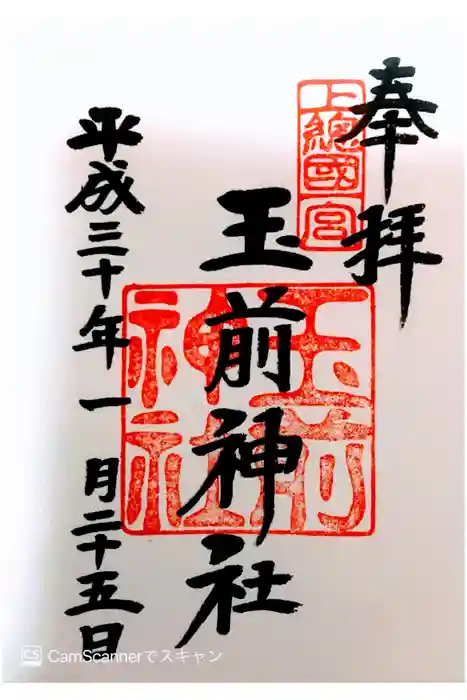 奉拝
上總國宮
玉前神社
玉前神社
平成三十年一月二十五日
CS CamScannerでスキャン